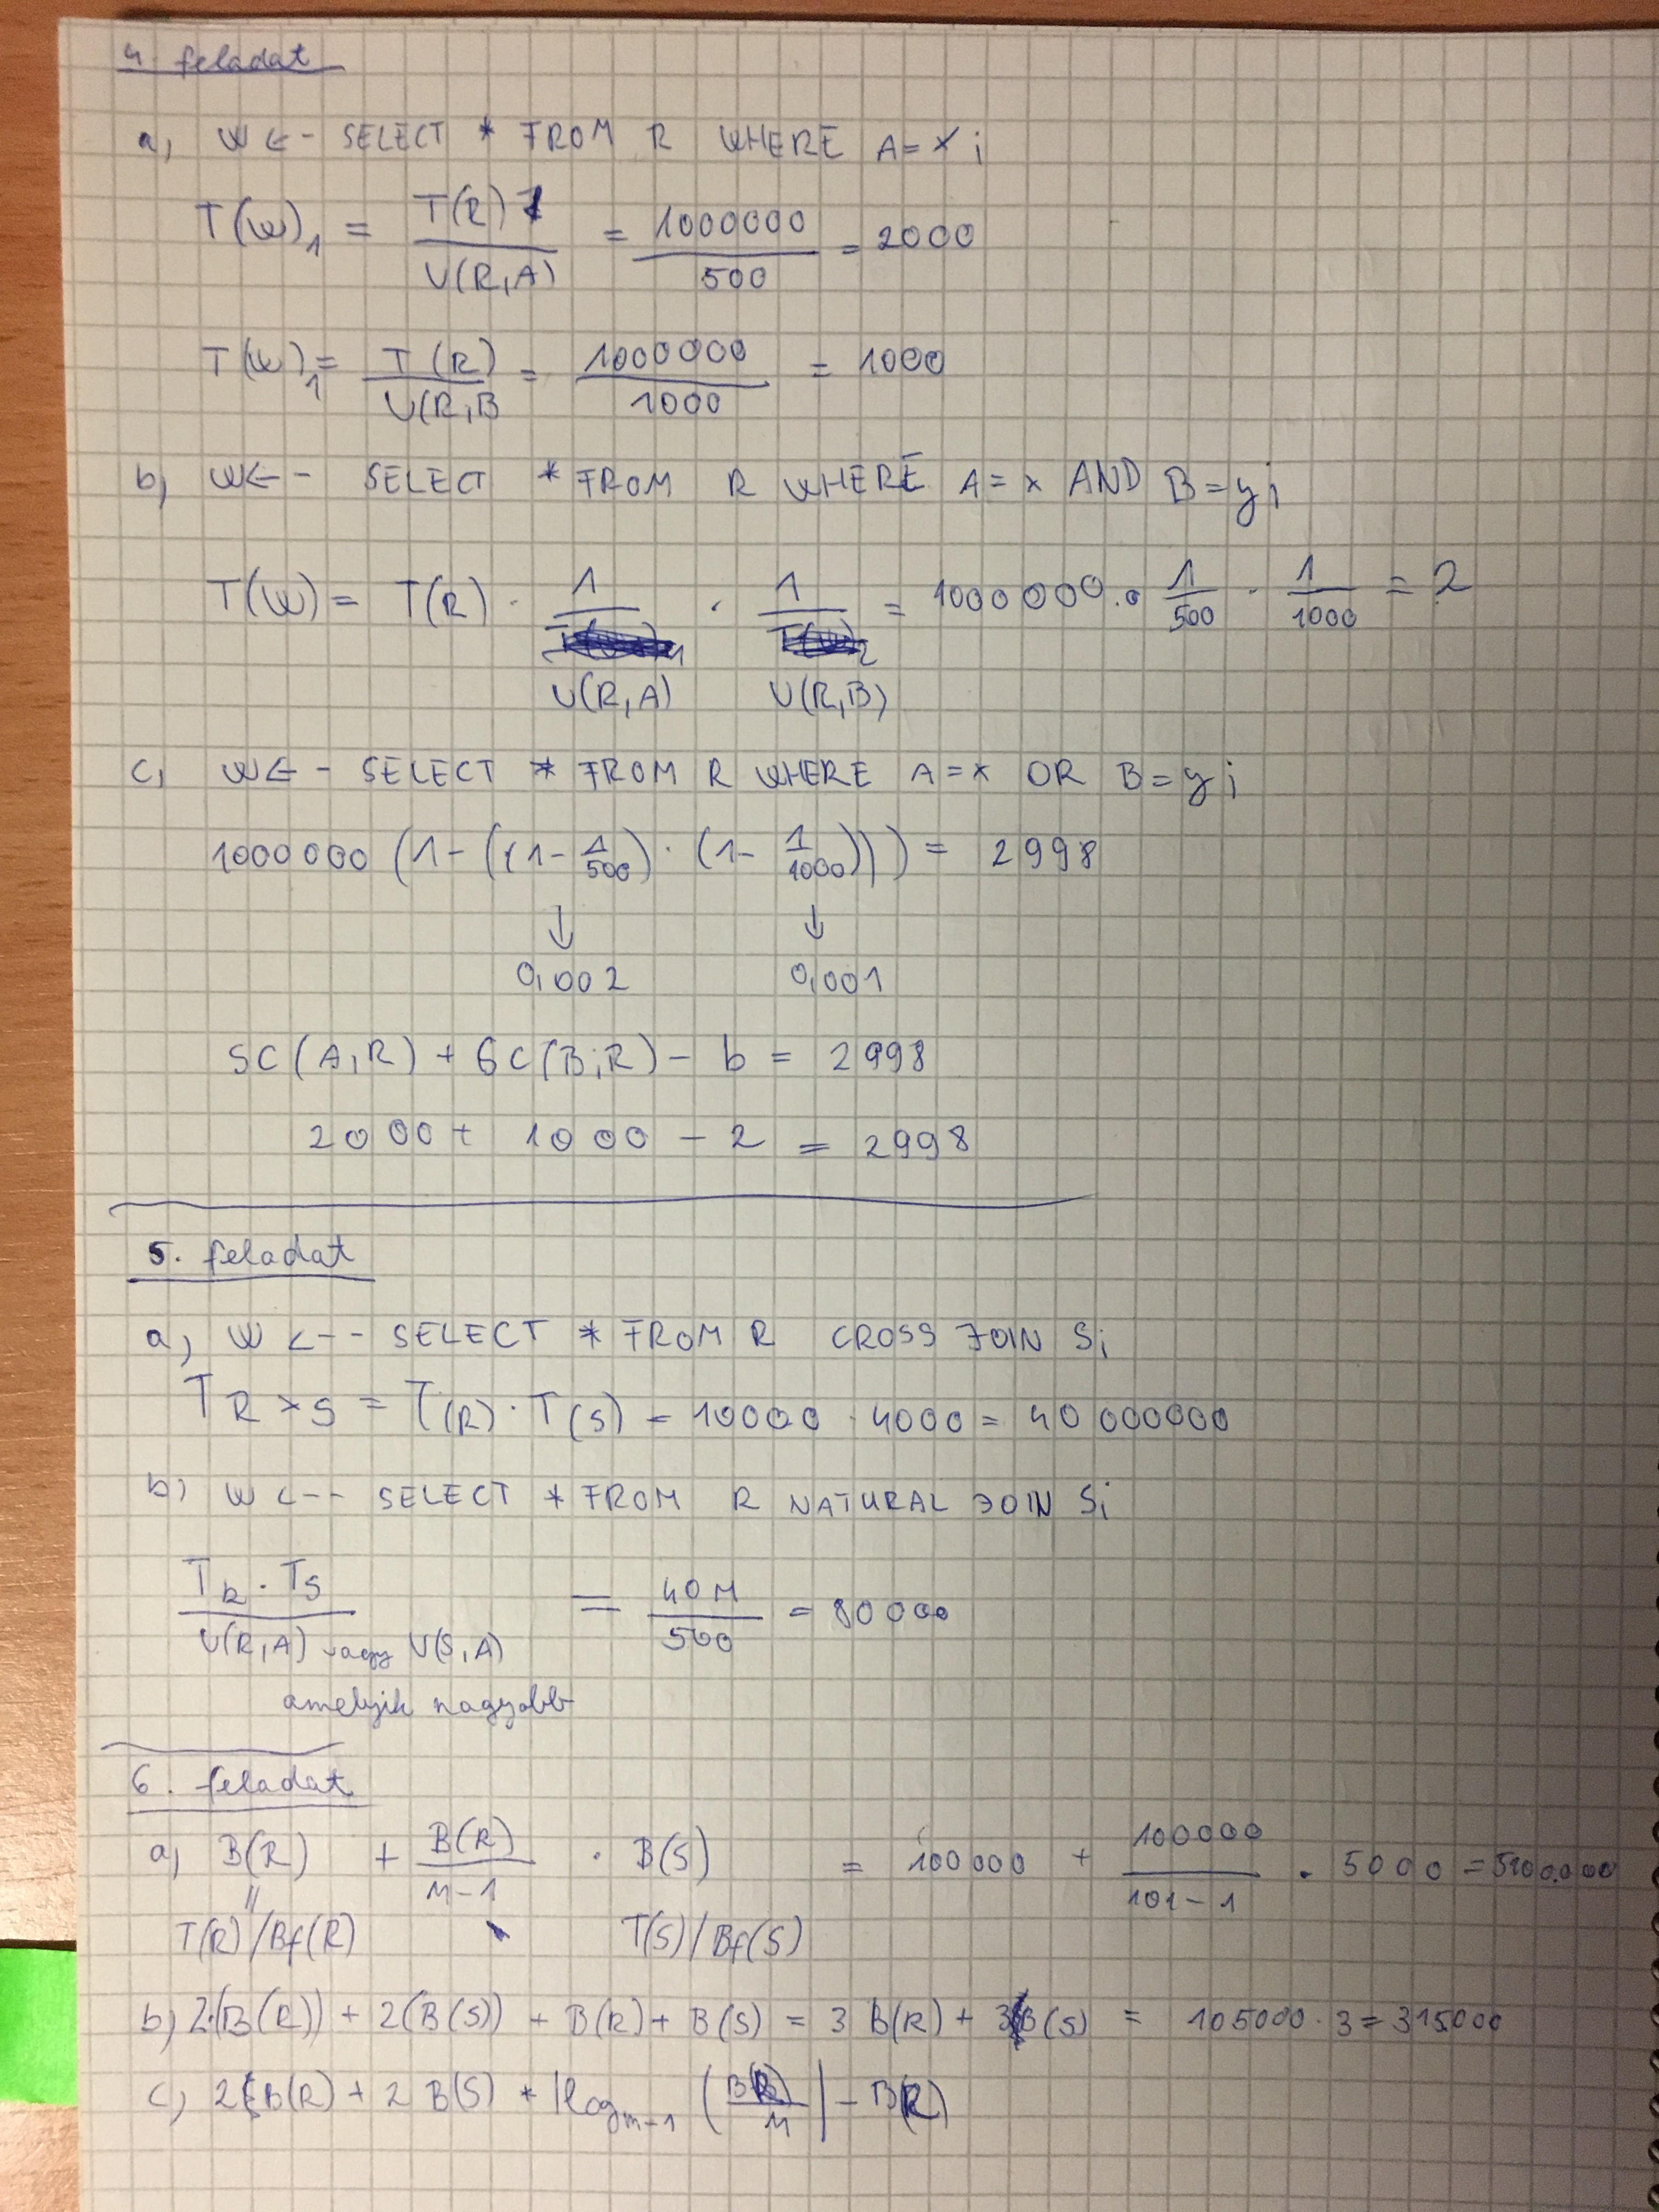 4. feladat
a, W <- SELECT * FROM R WHERE A=x;
T(W)₁ = T(R) / V(R,A) = 1000000 / 500 = 2000
T(W)₁ = T(R) / V(R,B = 1000000 / 1000 = 1000
b, W<-- SELECT * FROM R WHERE A=x AND B=y;
T(W) = T(R) · 1 / V(R,A) · 1 / V(R,B) = 1000000 · 1/500 · 1/1000 = 2
c, W<- SELECT * FROM R WHERE A=x OR B=y;
1000000 (1-((1-1/500)·(1-1/1000))) = 2998
↓ ↓
0,002 0,001
SC(A,R) + SC(B,R) - b = 2998
2000 + 1000 - 2 = 2998
5. feladat
a, W <-- SELECT * FROM R CROSS JOIN S;
T R×S = T(R) · T(S) = 10000 · 4000 = 40 000000
b, W <-- SELECT * FROM R NATURAL JOIN S;
T_R · T_S / V(R,A) vagy V(S,A) = 40M / 500 = 80000
amelyik nagyobb
6. feladat
a, B(R) + B(R) / M-1 · B(S) = 100000 + 100000 / 101-1 · 5000 = 5100.000
"
T(R)/Bf(R) T(S)/Bf(S)
b) 2·(B(R)) + 2(B(S)) + B(R) + B(S) = 3 B(R) + 3B(S) = 105000 · 3 = 315000